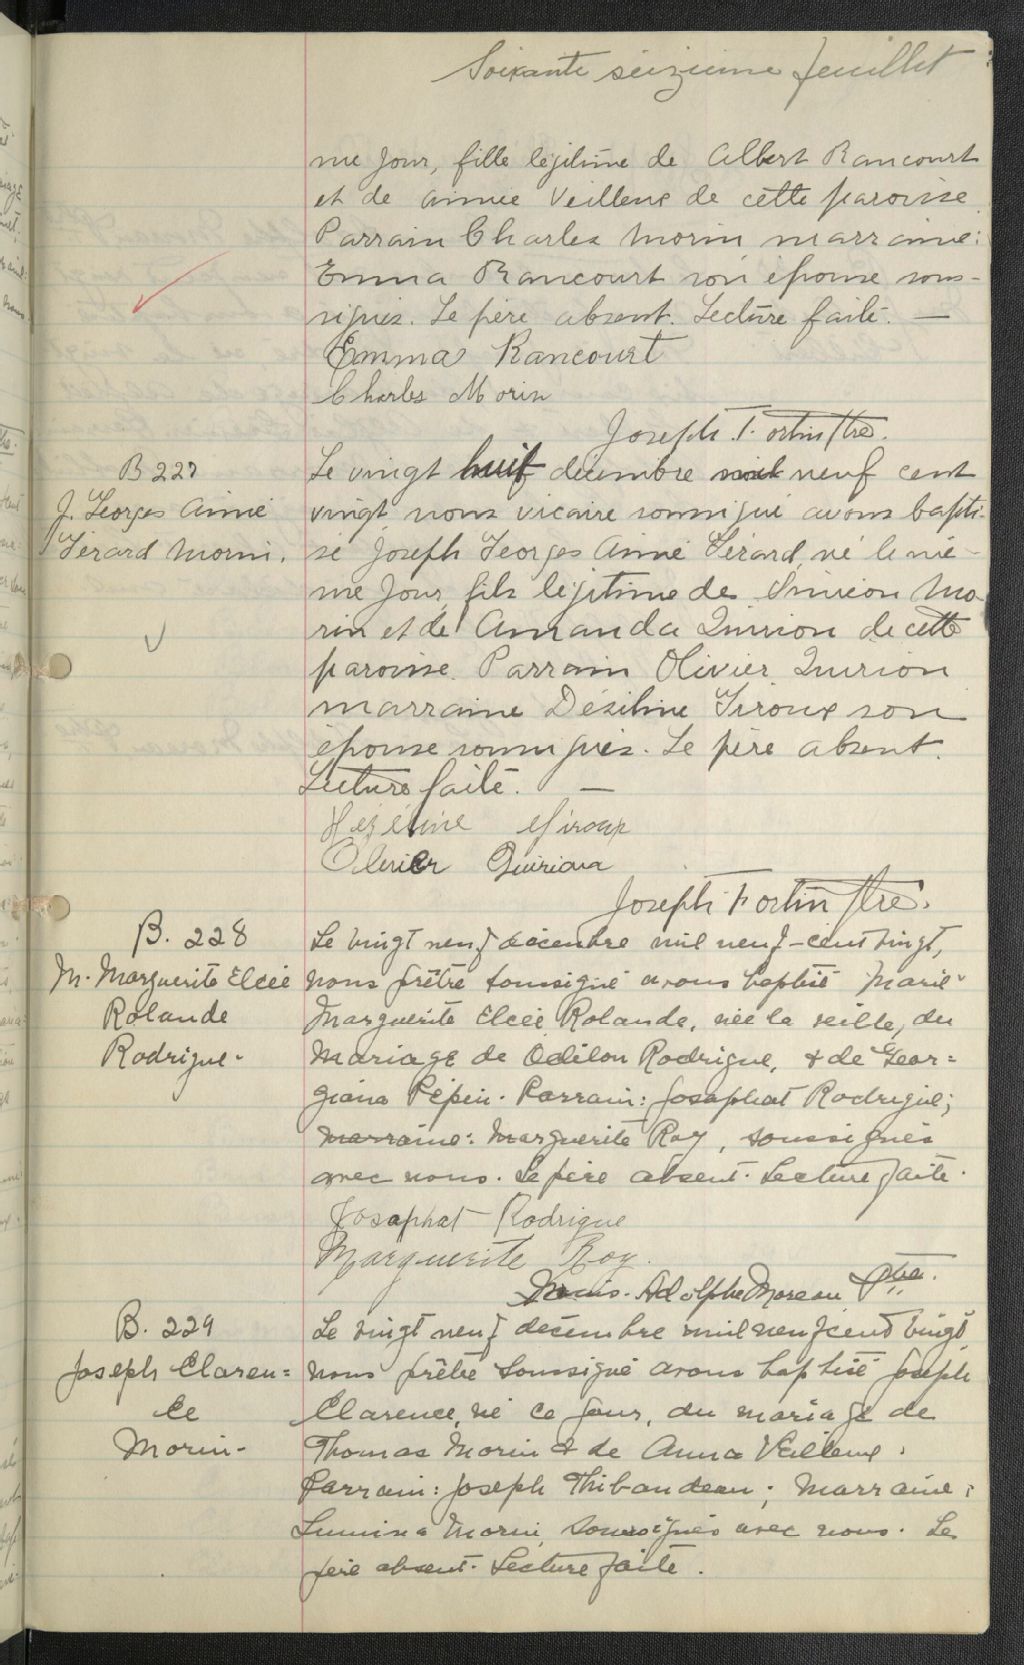 Soixante seizieme feuillet
me jour, fille légitime de Albert Rancourt
et de Aimée Veilleux de cette paroisse
Parrain Charles Morin marraine:
Emma Rancourt son épouse sous-
signés. Le père absent. Lecture faite. —
Emma Rancourt
Charles Morin
Joseph Fortin Ptre.
B 227
J. Georges Aimé
Gérard Morin.
Le vingt huit décembre mil neuf cent
vingt nous vicaire soussigné avons bapti-
sé Joseph Georges Aimé Gérard, né le mê-
me jour, fils légitime de Siméon Mo-
rin et de Amanda Quirion de cette
paroisse. Parrain Olivier Quirion
marraine Déziline Giroux son
épouse soussignés. Le père absent.
Lecture faite. —
Giroux
Olivier Quirion
Joseph Fortin Ptre.
B. 228
M. Marguerite Elcée
Rolande
Rodrigue-
Le vingt neuf décembre mil neuf-cent vingt,
nous prêtre soussigné avons baptisé Marie-
Marguerite Elcée Rolande, née la veille, du
mariage de Odilon Rodrigue, & de Geor=
giana Pépin. Parrain: Josaphat Rodrigue;
marraine: Marguerite Roy, soussignés
avec nous. Le père absent. Lecture faite.
Josaphat Rodrigue
Marguerite Roy.
Louis-Adolphe Moreau Ptre.
B. 229
Joseph Claren=
ce
Morin-
Le vingt neuf décembre mil neuf cent vingt
nous prêtre soussigné avons baptisé Joseph
Clarence, né ce jour, du mariage de
Thomas Morin & de Anna Veilleux.
Parrain: Joseph Thibaudeau; Marraine:
Lumina Morin, soussignés avec nous. Le
père absent. Lecture faite.